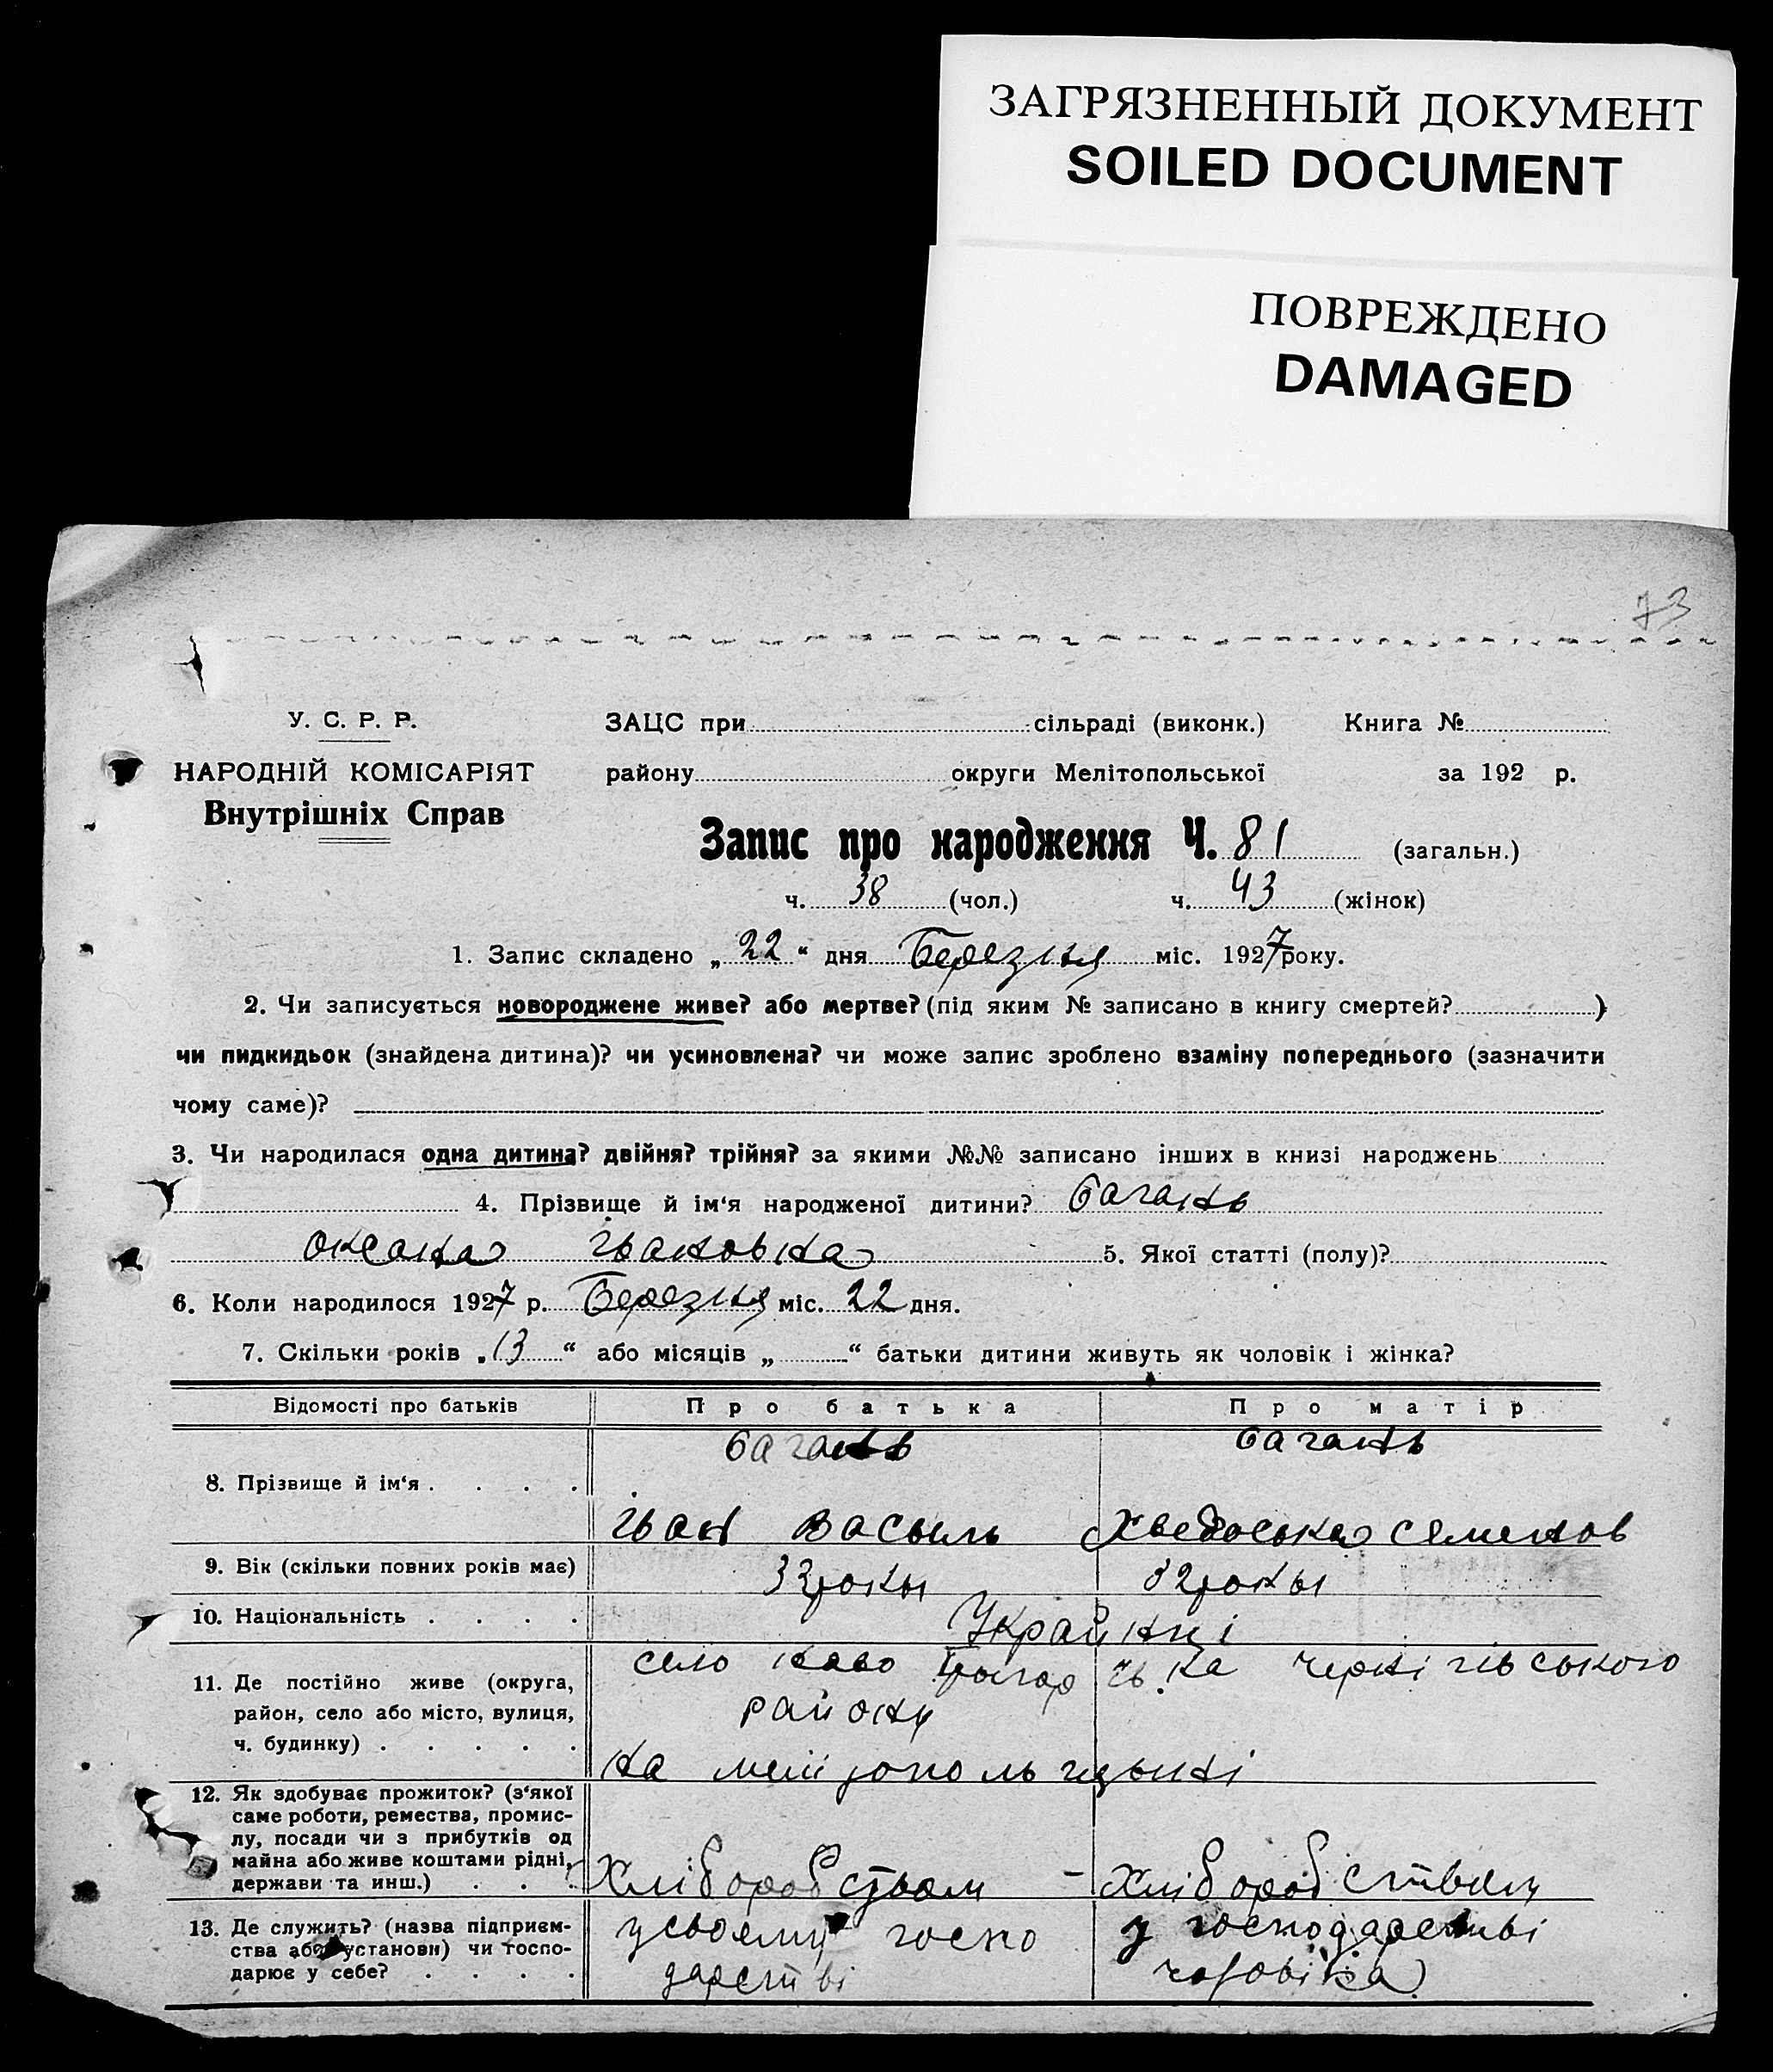 ЗАГРЯЗНЕННЫЙ ДОКУМЕНТ
SOILED DOCUMENT
ПОВРЕЖДЕНО
DAMAGED
73
У. С. Р. Р.
НАРОДНІЙ КОМІСАРІЯТ
Внутрішніх Справ
ЗАЦС при сільраді (виконк.) Книга №
району округи Мелітопольської за 192 р.
Запис про народження Ч. 81 (загальн.)
ч. 38 (чол.) ч. 43 (жінок)
1. Запис складено „22“ дня Березня міс. 1927 року.
2. Чи записується новороджене живе? або мертве? (під яким № записано в книгу смертей? )
чи пидкидьок (знайдена дитина)? чи усиновлена? чи може запис зроблено взаміну попереднього (зазначити
чому саме)?
3. Чи народилася одна дитина? двійня? трійня? за якими №№ записано інших в книзі народжень
4. Прізвище й ім‘я народженої дитини? Багань
Оксана Івановна 5. Якої статті (полу)?
6. Коли народилося 1927 р. Березня міс. 22 дня.
7. Скільки років „13“ або місяців „ “ батьки дитини живуть як чоловік і жінка?
Відомості про батьків Про батька Про матір
Багань Багань
8. Прізвище й ім‘я . . . .
Іван Васыль Хведоська Семенов
9. Вік (скільки повних років має) 33 рокы 32 рокы
10. Національність . . . . Украйнці
11. Де постійно живе (округа,
район, село або місто, вулиця,
ч. будинку) . . . . .
село Ново Чернігівського
району
на
12. Як здобуває прожиток? (з‘якої
саме роботи, ремества, промис-
лу, посади чи з прибутків од
майна або живе коштами рідні,
держави та инш.) . . .
Хліборобством - Хліборобством
13. Де служить? (назва підприєм-
ства або установи) чи госпо-
дарює у себе? . . . .
у своему госпо
дарстві
у господарстві
чоловіка